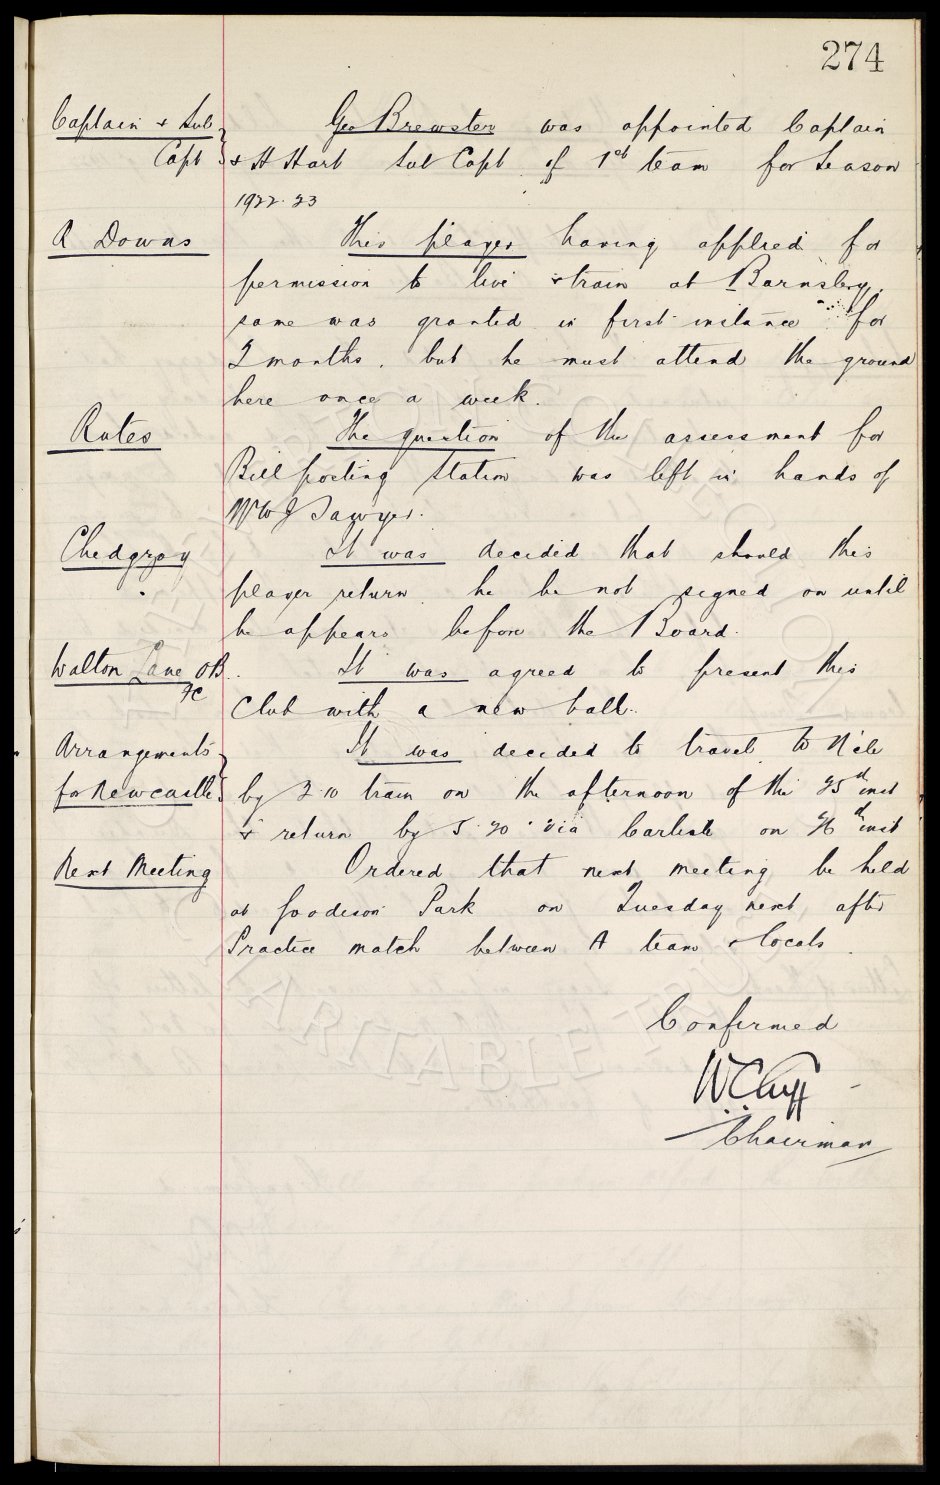 274
Captain & Sub
Capt
Geo Brewster was appointed Captain
& H Hart Sub Capt of 1st team for Season
1922.23
R Downs
This player having applied for
permission to live & train at Barnsley,
same was granted in first instance for
2 months, but he must attend the ground
here once a week.
Rates
The question of the assessment for
Bill posting station was left in hands of
W J Sawyer.
Chedgzoy
It was decided that should this
player return he be not signed on until
he appears before the Board.
Walton Lane OB
FC
It was agreed to present this
Club with a new ball.
Arrangements
for Newcastle
It was decided to travel to N'cle
by 2.10 train on the afternoon of the 25d inst
& return by 5.20 via Carlisle on 26d inst
Next Meeting
Ordered that next meeting be held
at Goodison Park on Tuesday next, after
Practice match between A team & locals.
Confirmed
W.C. Cuff
Chairman
CHARITABLE TRUST